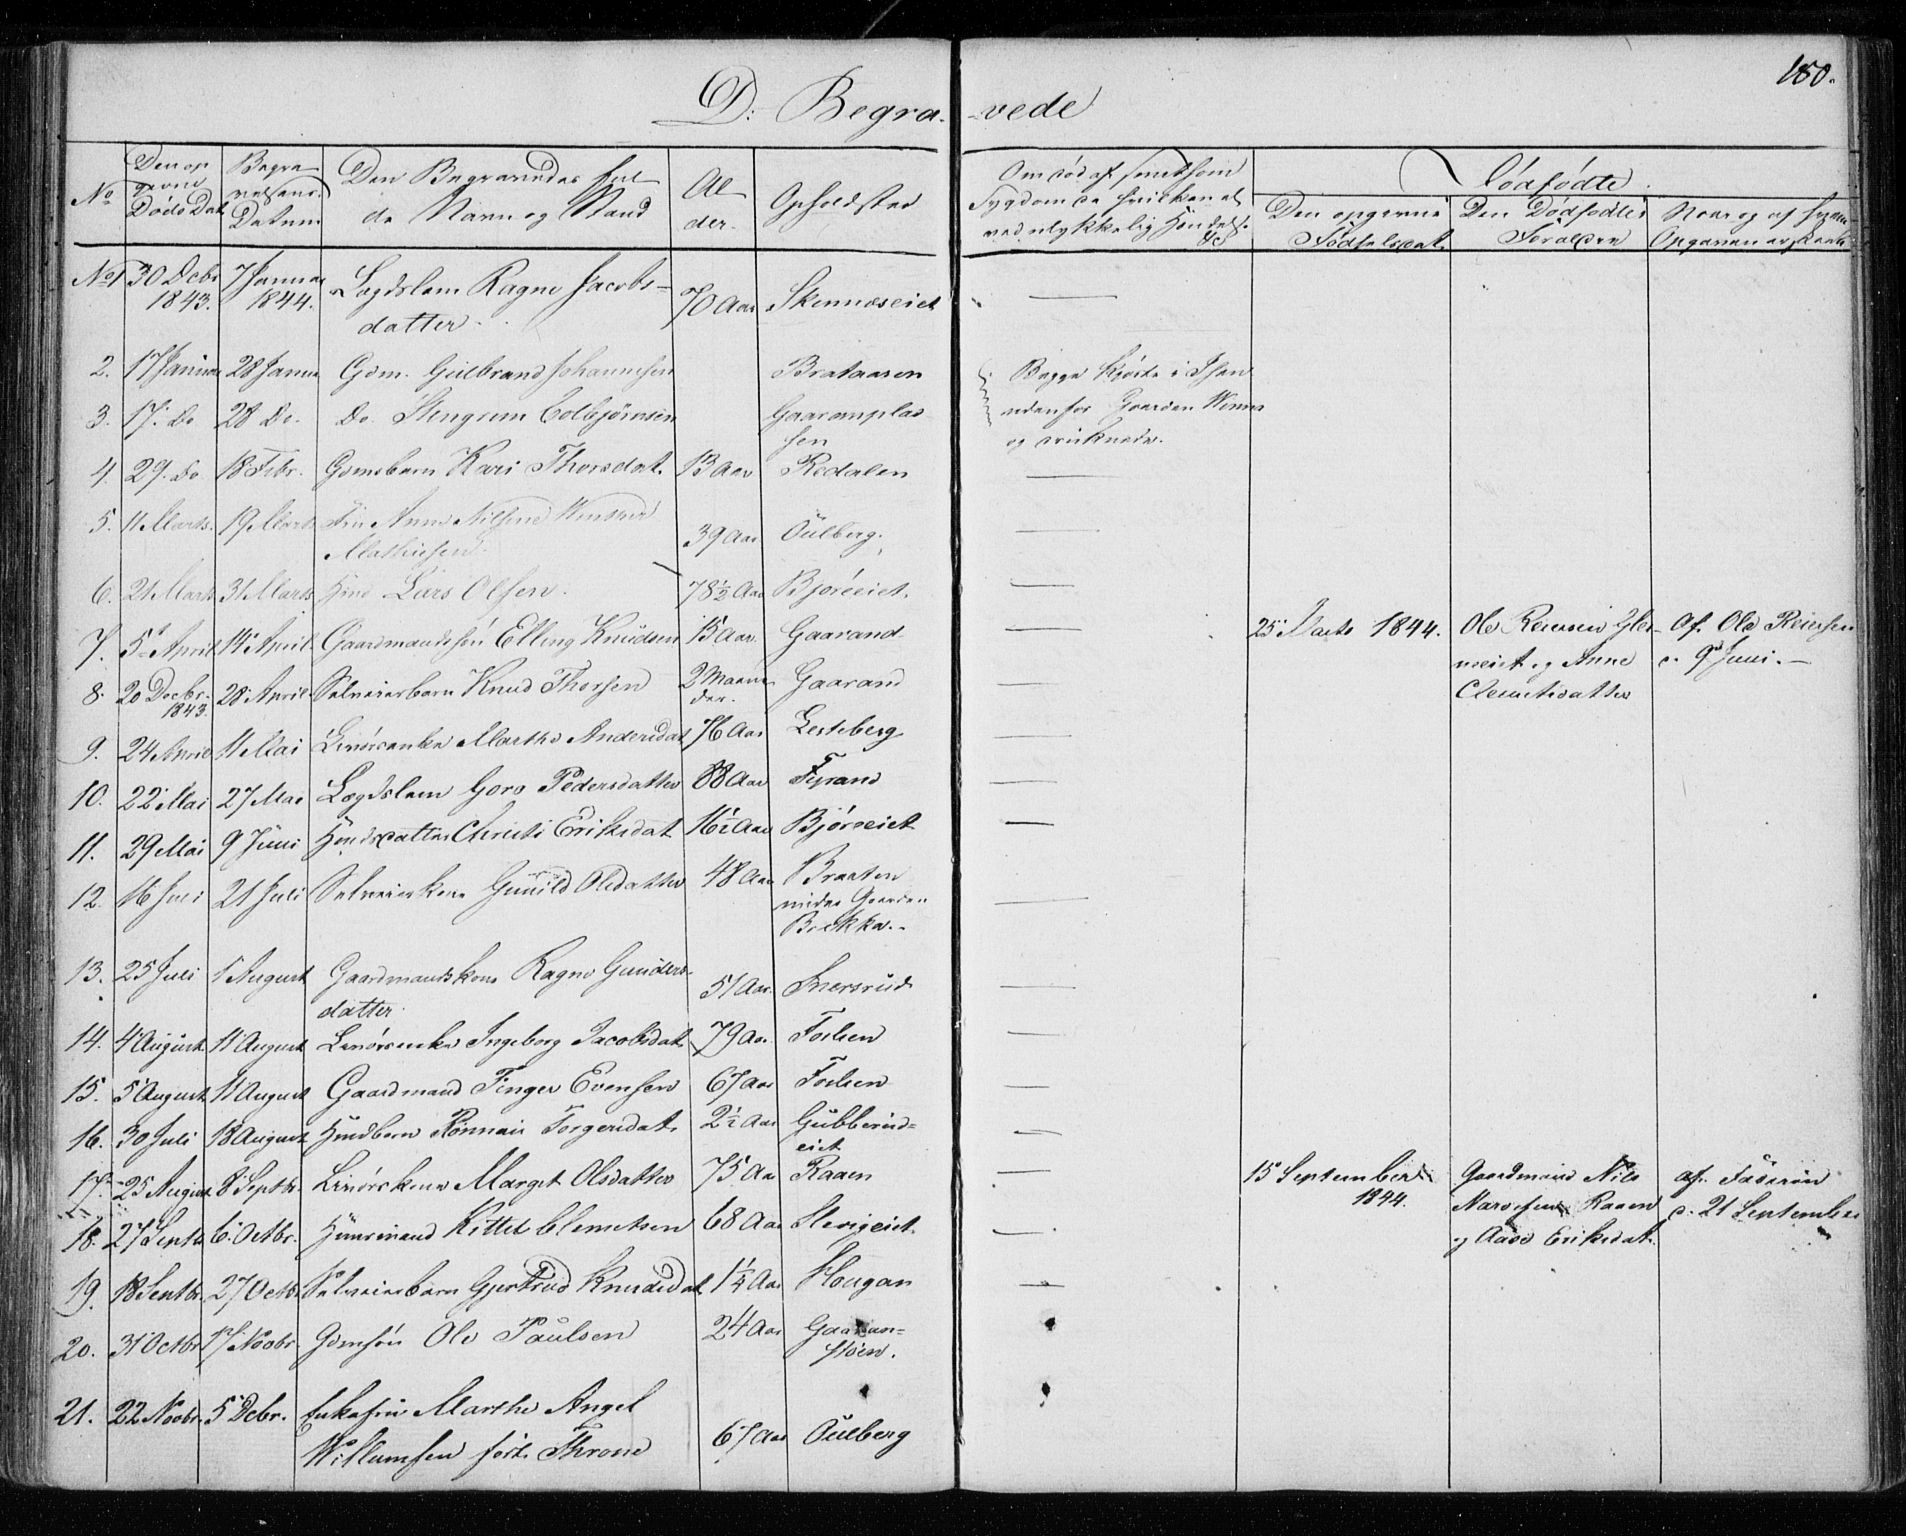 180.
D. Begra- -vede
No Den opgivne Døds Dat. Begravelsens Datum Den Begravedes fulde Navn og Stand Alder. Opholdsted
Om død af smitsom Sygdom ved ulykkelig Hændelse &c
Dødfødte.
Den opgivne Fødselsdat. Den Dødfødtes Forældre Naar og af hvem Opgaven er skeet
No 1 30 Decbr 1843. 7 Januar 1844. Lægdslem Ragne Jacobs-
datter. 70 Aar Skinneseiet —
2. 17 Januar 28 Januar Gdm. Gulbrand Johannesen Brataasen
3. 17. Do 28 Do. Do. Stengrim Colbjørnsen Gaaranplad-
sen
Begge kjørte i Isen
udenfor Gaarden
og druknede.
4. 29. Do 18 Febr. Gdmsbarn Kari Thorsdat. 13 Aar Rodalen —
5. 11 Marts. 19 Marts Fru Anne Winther
Mathiesen. 39 Aar Oulberg. —
6. 21 Marts 31 Marts Hmd Lars Olsen. 78½ Aar Bjøreiet. —
7. 5t April 14 April Gaardmandssøn Elling Knudsen 15 Aar. Gaarand
25 Marts 1844. Ole Reiersen af Ole Reiersen
og Anne d. 9 Juni. —
Clemetsdatter
8. 20 Decbr. 1843. 28 April Selveierbarn Knud Thorsen 2 Maane-
der. Gaarand —
9. 24 April 11 Mai Marthe Andersdat 76 Aar Lesteberg —
10. 22 Mai 27 Mai Lægdslem Goro Pedersdatter 88 Aar Fyrand —
11. 29 Mai 9 Juni Christi Eriksdat 16½ Aar Bjøreeiet —
12. 16 Juli 21 Juli Selveierkone Gunild Olsdatter 48 Aar Braaten
under Gaarden
Brekka. —
13. 25 Juli 1 August Gaardmandskone Ragne Gunders-
datter 51 Aar. Snersrud —
14. 4 August 11 August Ingeborg Jacobsdat. 79 Aar Foslien —
15. 5 August 11 August Gaardmand Finger Evensen 67 Aar Foslien —
16. 30 Juli 18 August Rønnau Torgersdat. 2½ Aar Gubberud-
eiet —
17. 25 August 8 Septbr. Margit Olsdatter 75 Aar Raaen —
15 September 1844. Gaardmand Nils af Faderen
Raaen d. 21 September
og Aase Eriksdat.
18. 27 Septbr 6 Octbr. Huusmand Kittel Clemetsen 68 Aar —
19. 18 Septbr. 27 Octbr Selveierbarn Gjertrud Knudsdat 1¼ Aar Hougan —
20. 31 Octbr 17 Novbr. Gdmsøn Ole Paulsen 24 Aar Gaaran-
støen.
21. 22 Novbr. 5 Decbr. Enkefru Marthe Angel
Willumsen født Throne 67 Aar Oulberg